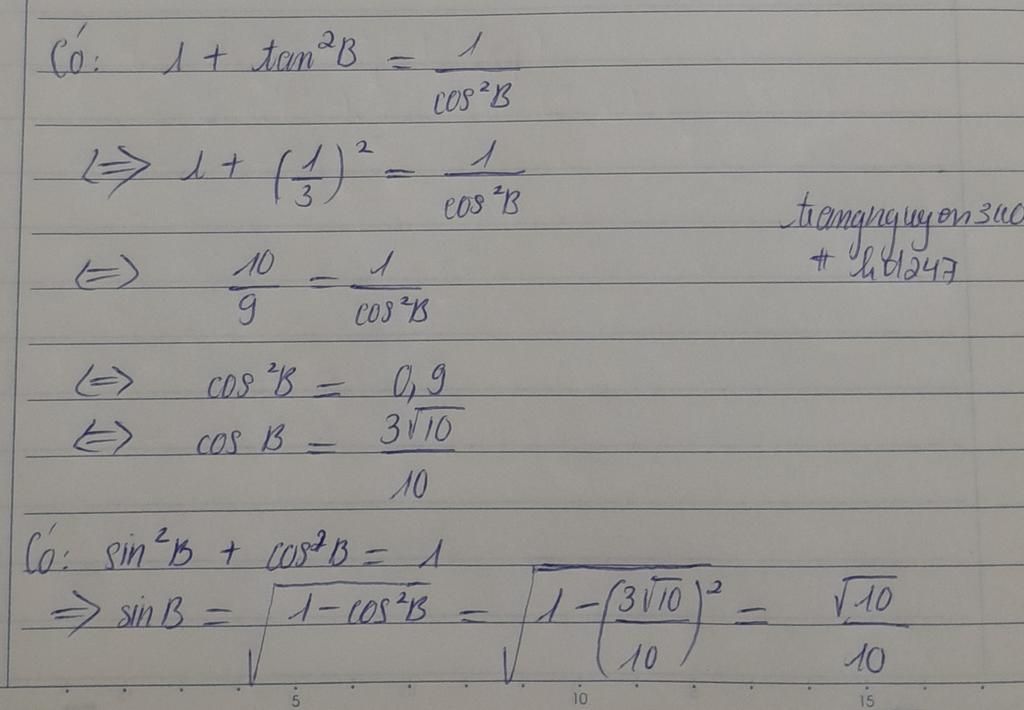 Có: 1 + tan²B = 1/cos²B
⇔ 1 + (1/3)² = 1/cos²B
⇔ 10/9 = 1/cos²B
⇔ cos²B = 0,9
⇔ cos B = 3√10/10
Có: sin²B + cos²B = 1
⇒ sin B = √(1 - cos²B) = √(1 - (3√10/10)²) = √10/10
5 10 15